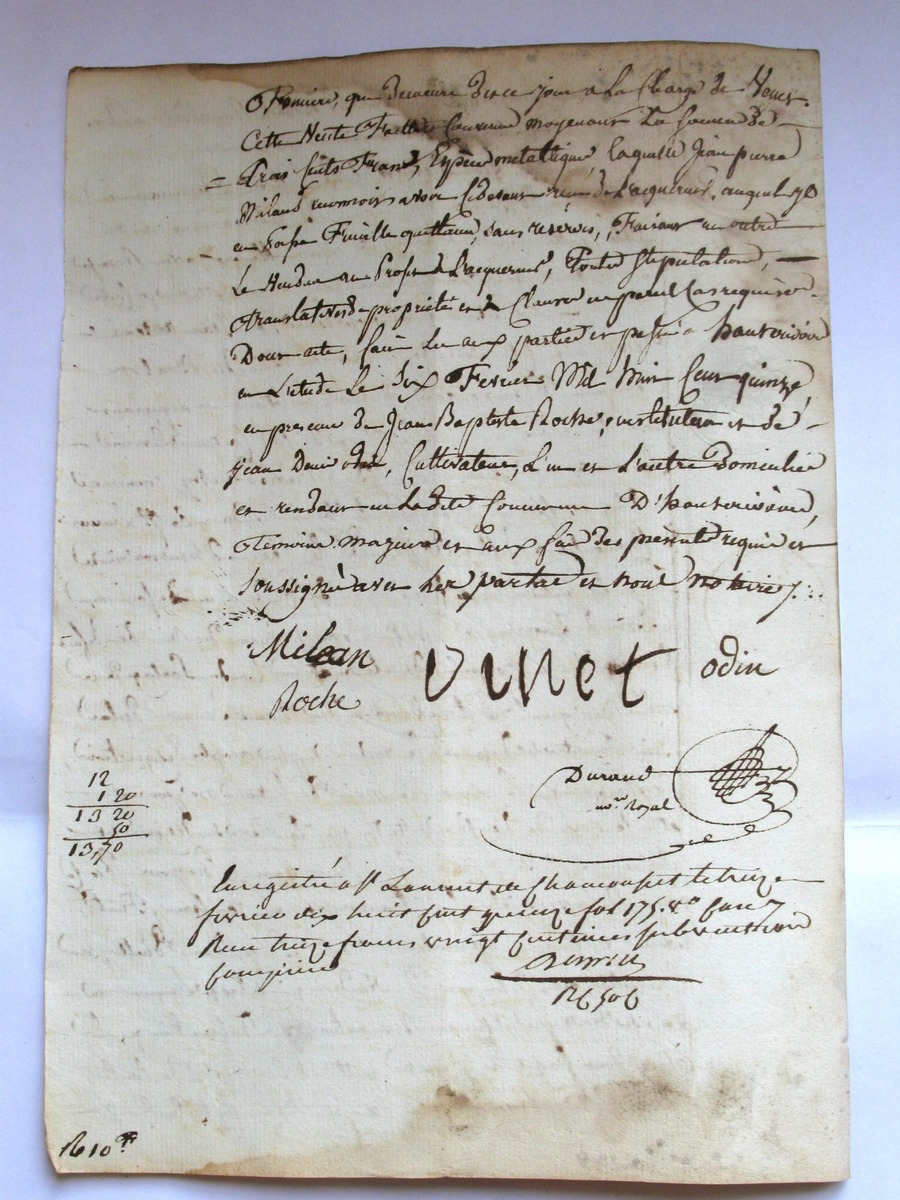 qui demeure dès ce jour a La Charge de
Cette Vente Faitte Convenue moyenant La Somme de —
= Trois Cents Francs, Espèce metallique, laquelle Jean pierre
Miland reconnoit avoir Cidevant reçu de L'acquereur, auquel il
en passe quittance, sans réserves, Faisant en outre
Le Vendeur au Profit de L'acquereur, Toutes Stipulations, —
Translatives de propriété et Clauses en pareil Cas requises.
Dont acte, fait Lu aux parties et passé a hauterivoire
en L'etude Le Six Fevrier Mil huit Cent quinze,
en presence de Jean Baptiste Roche, instituteur et de —
jean Denis odin, Cultivateur, L'un et L'autre Domiciliés
et residant en Ladite Commune D'hauterivoire,
Temoins majeurs et aux fins des présentes requis et
Soussignés avec les parties et nous notaire ./.
Milan vinet odin
Roche
Durand
n.re Royal
12
1 20
13 20
50
13,70
Enregistré a St Laurent de Chamousset le treize
fevrier dix huit cent quinze fol 175. v.o Case 7
Reçu treize francs vingt centimes subvention
comprise